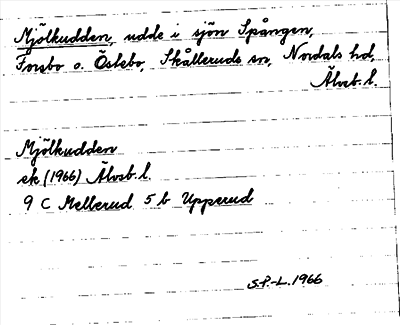 Mjölkudden, udde i sjön Spången,
Forsbo o. Östebo, Skålleruds sn, Nordals hd,
Älvsb. l.
Mjölkudden
ek (1966) Älvsb. l.
9 C Mellerud 5 b Upperud
S.P-L. 1966